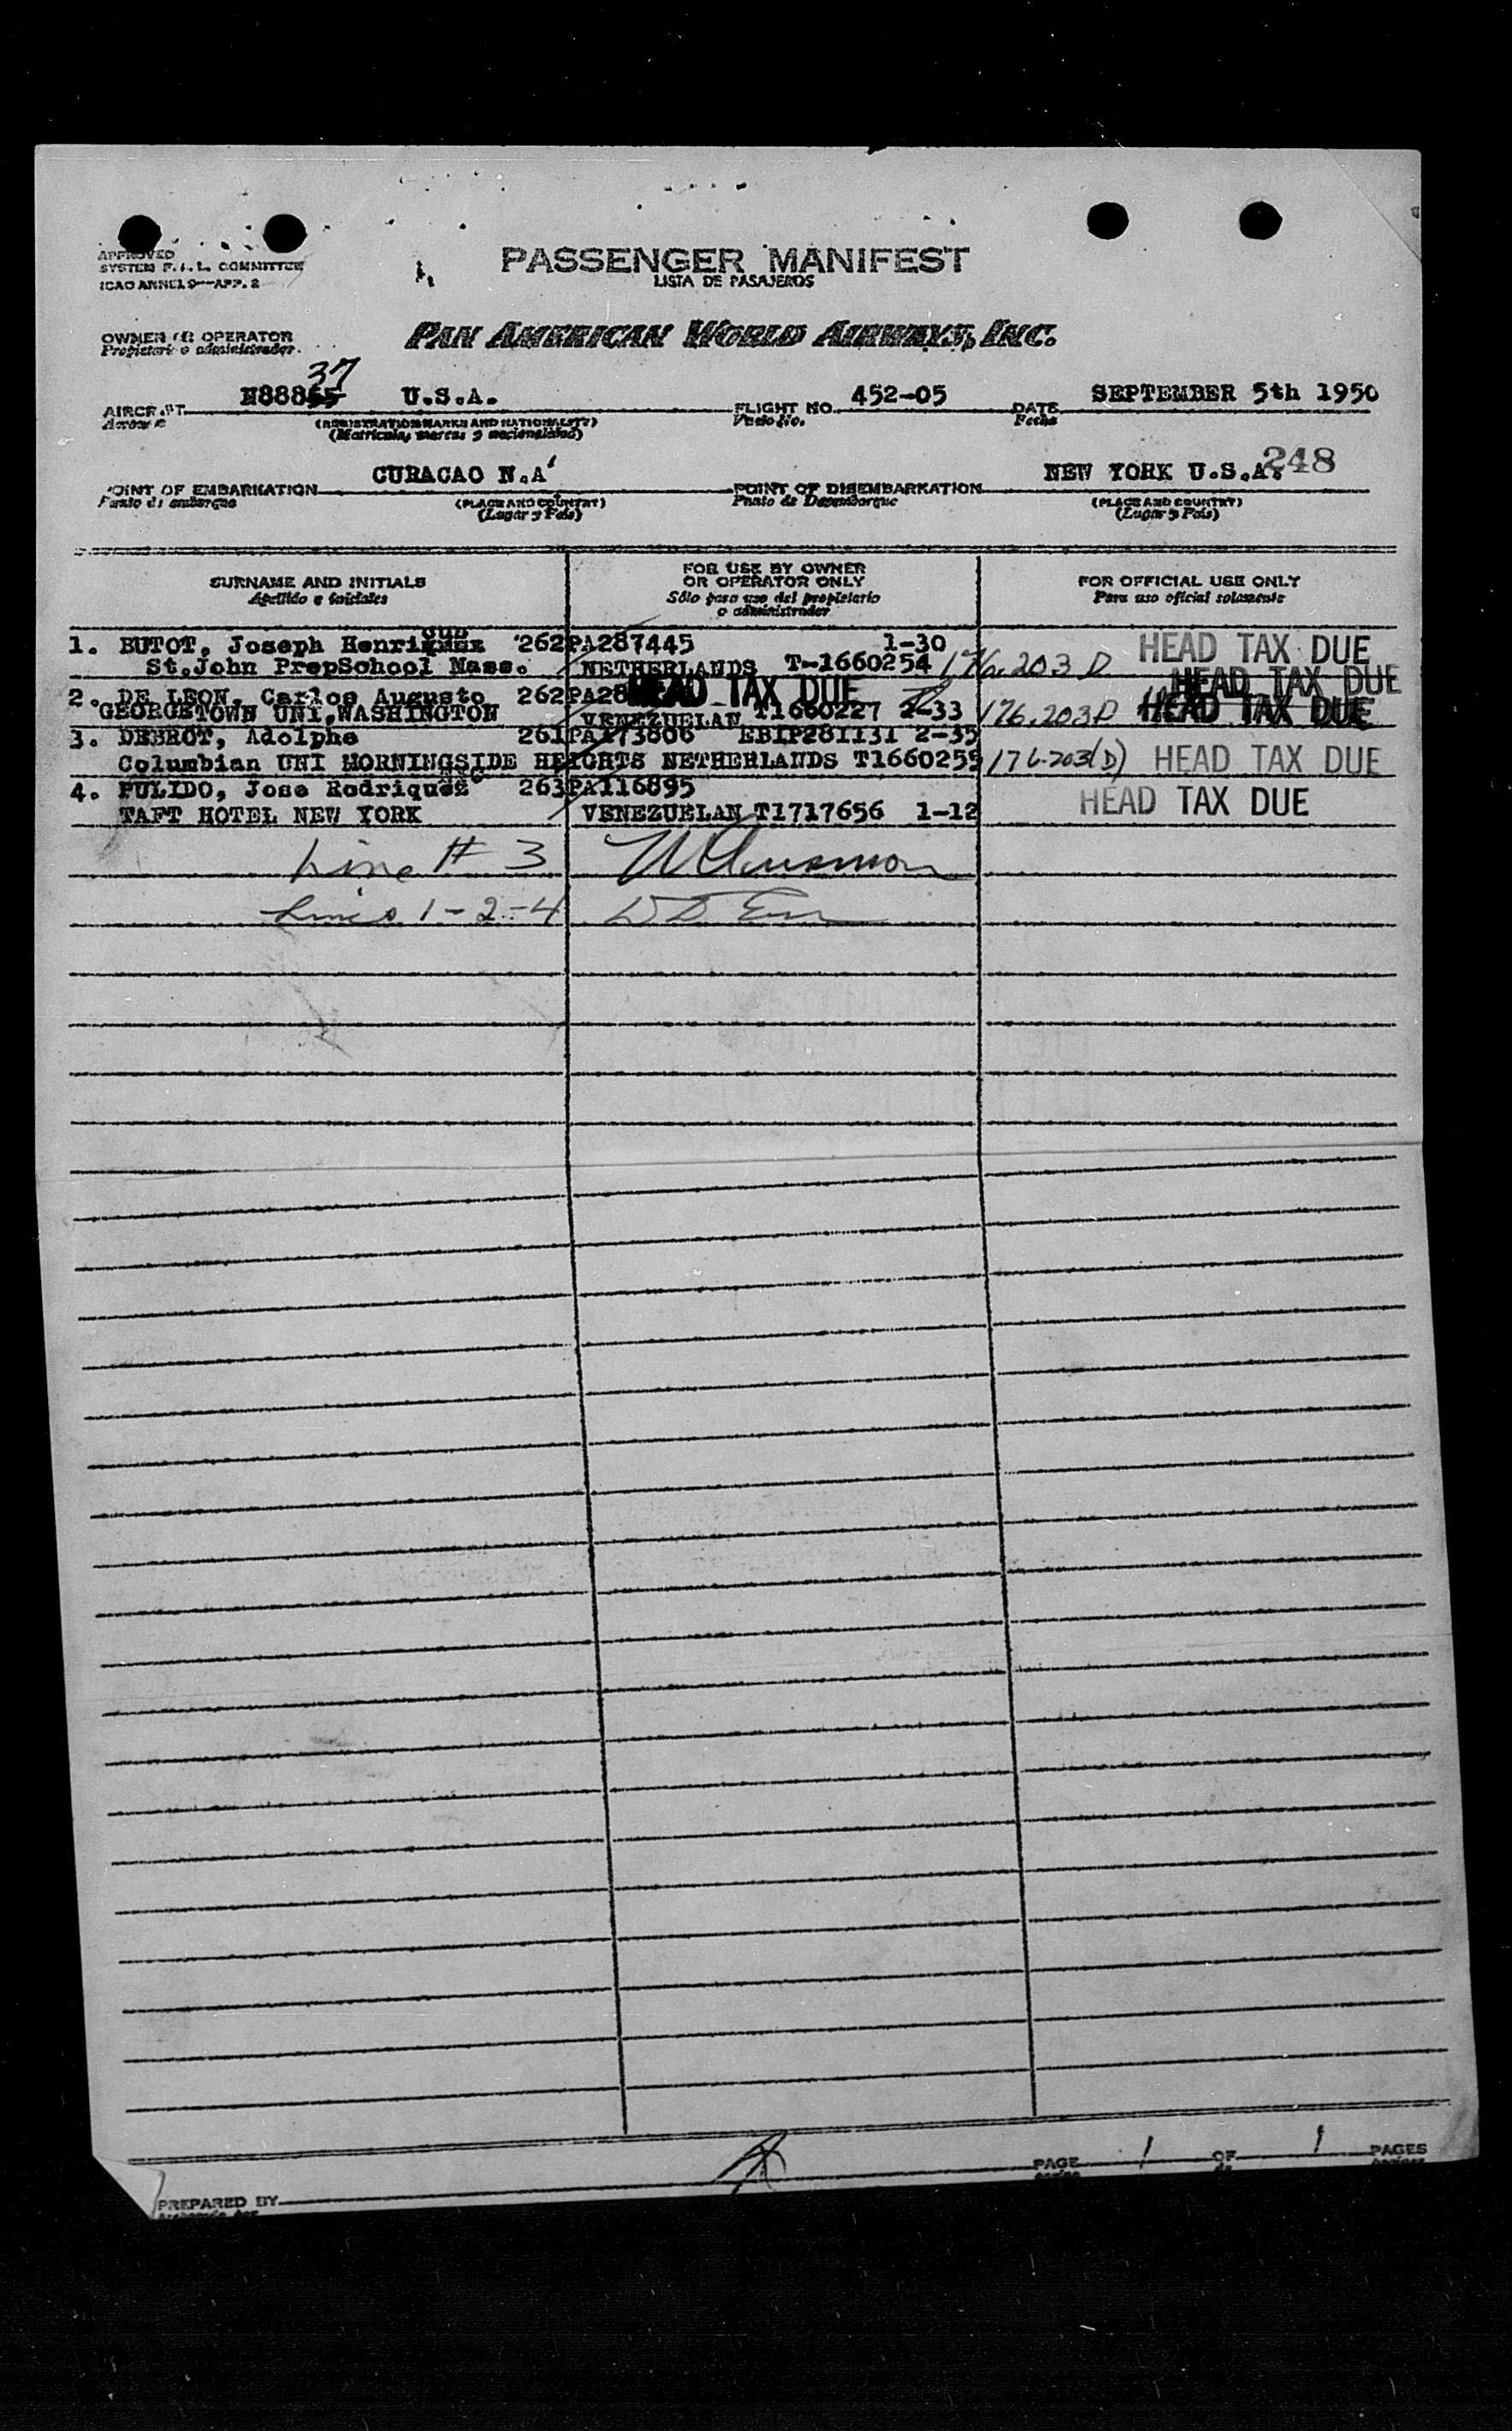 APPROVED
SYSTEM F.A.L. COMMITTEE
ICAO ANNEX 9—APP. 2
PASSENGER MANIFEST
LISTA DE PASAJEROS
OWNER OR OPERATOR
Propietario o administrador
PAN AMERICAN WORLD AIRWAYS, INC.
37
AIRCRAFT N88855 U.S.A. FLIGHT NO. 452-05 DATE SEPTEMBER 5th 1950
(REGISTRATION MARKS AND NATIONALITY) Vuelo No. Fecha
(Matriculas, marcas y nacionalidad)
248
POINT OF EMBARKATION CURACAO N.A POINT OF DISEMBARKATION NEW YORK U.S.A.
Punto de embarque (PLACE AND COUNTRY) Punto de Desembarque (PLACE AND COUNTRY)
(Lugar y País) (Lugar y País)
SURNAME AND INITIALS FOR USE BY OWNER OR OPERATOR ONLY FOR OFFICIAL USE ONLY
Apellido e iniciales Sólo para uso del propietario o administrador Para uso oficial solamente
1. BUTOT, Joseph Henri 262PA287445 1-30 HEAD TAX DUE
St.John PrepSchool Mass. NETHERLANDS T-1660254 176.203 D
HEAD TAX DUE
2. DE LEON, Carlos Augusto 262PA28 HEAD TAX DUE
GEORGETOWN UNI.WASHINGTON VENEZUELAN T1660227 2-33 176.203D HEAD TAX DUE
3. DEBROT, Adolphe 261PA173806 EBIP281131 2-35
Columbian UNI MORNINGSIDE HEIGHTS NETHERLANDS T1660255 176.203(D) HEAD TAX DUE
4. PULIDO, Jose Rodriquez 263PA116895 HEAD TAX DUE
TAFT HOTEL NEW YORK VENEZUELAN T1717656 1-12
Line # 3
Lines 1-2-4
PREPARED BY PAGE 1 OF 1 PAGES